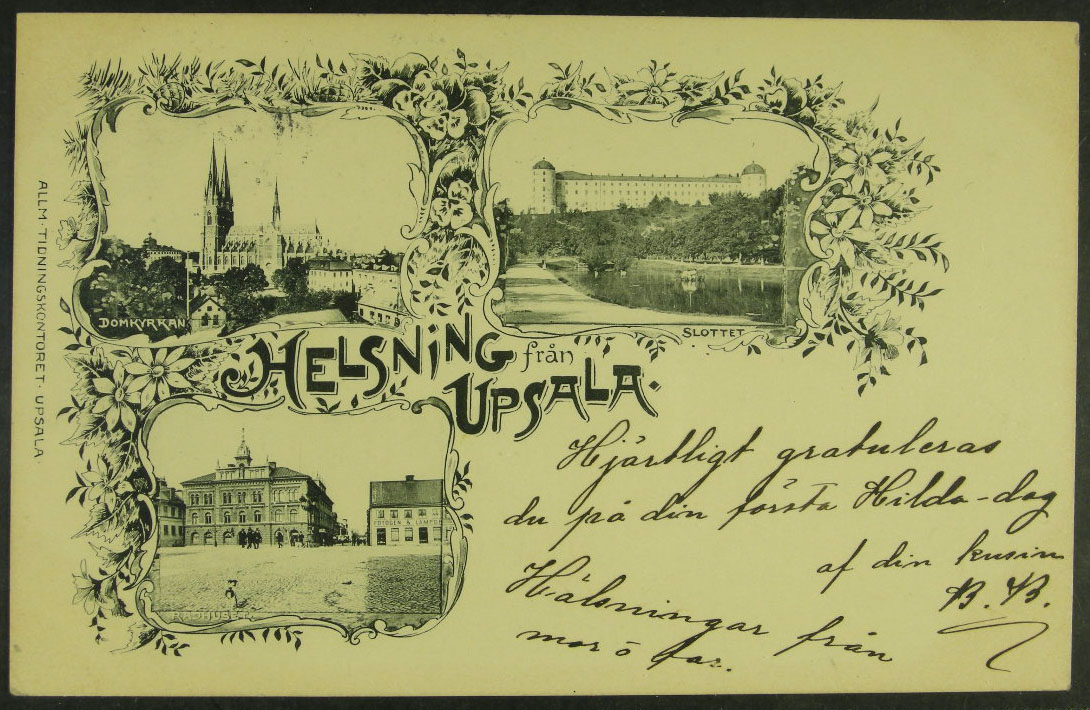 ALLM. TIDNINGSKONTORET. UPSALA.
DOMKYRKAN
SLOTTET
HELSNING från
UPSALA.
RÅDHUSET
Hjärtligt gratuleras
du på din första Hilda-dag
af din kusin
B. B.
Hälsningar från
mor o far.